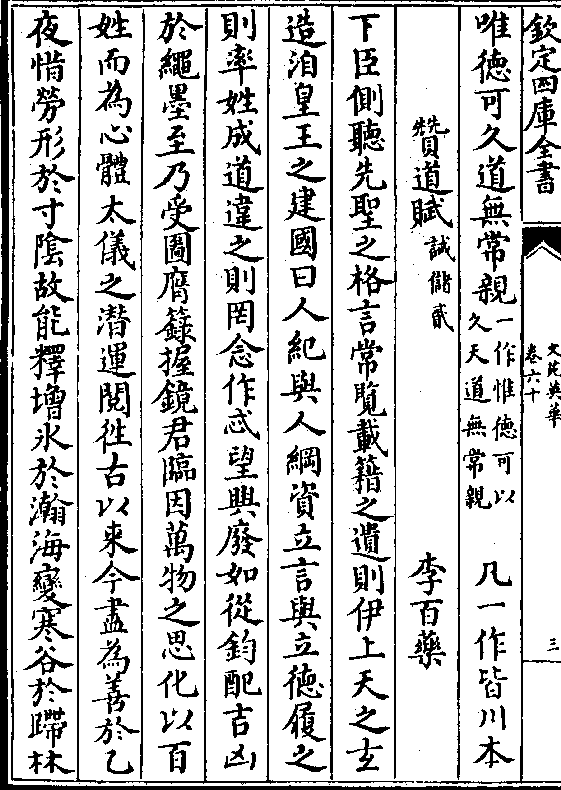 欽定四庫全書
文苑英華
卷六十
三
唯德可久道無常親一作惟德可以久天道無常親 凡一作皆川本
贊道賦誡儲貳 李百藥
下臣側聽先聖之格言常覧載籍之遺則伊上天之玄
造洎皇王之建國曰人紀與人綱資立言與立德履之
則率姓成道違之則罔念作忒望興廢如從鈞配吉凶
於繩墨至乃受圖膺籙握鏡君臨因萬物之思化以百
姓而為心體太儀之潜運閱徃古以来今盡為善於乙
夜惜勞形於寸隂故能釋增氷於瀚海變寒谷於蹛林